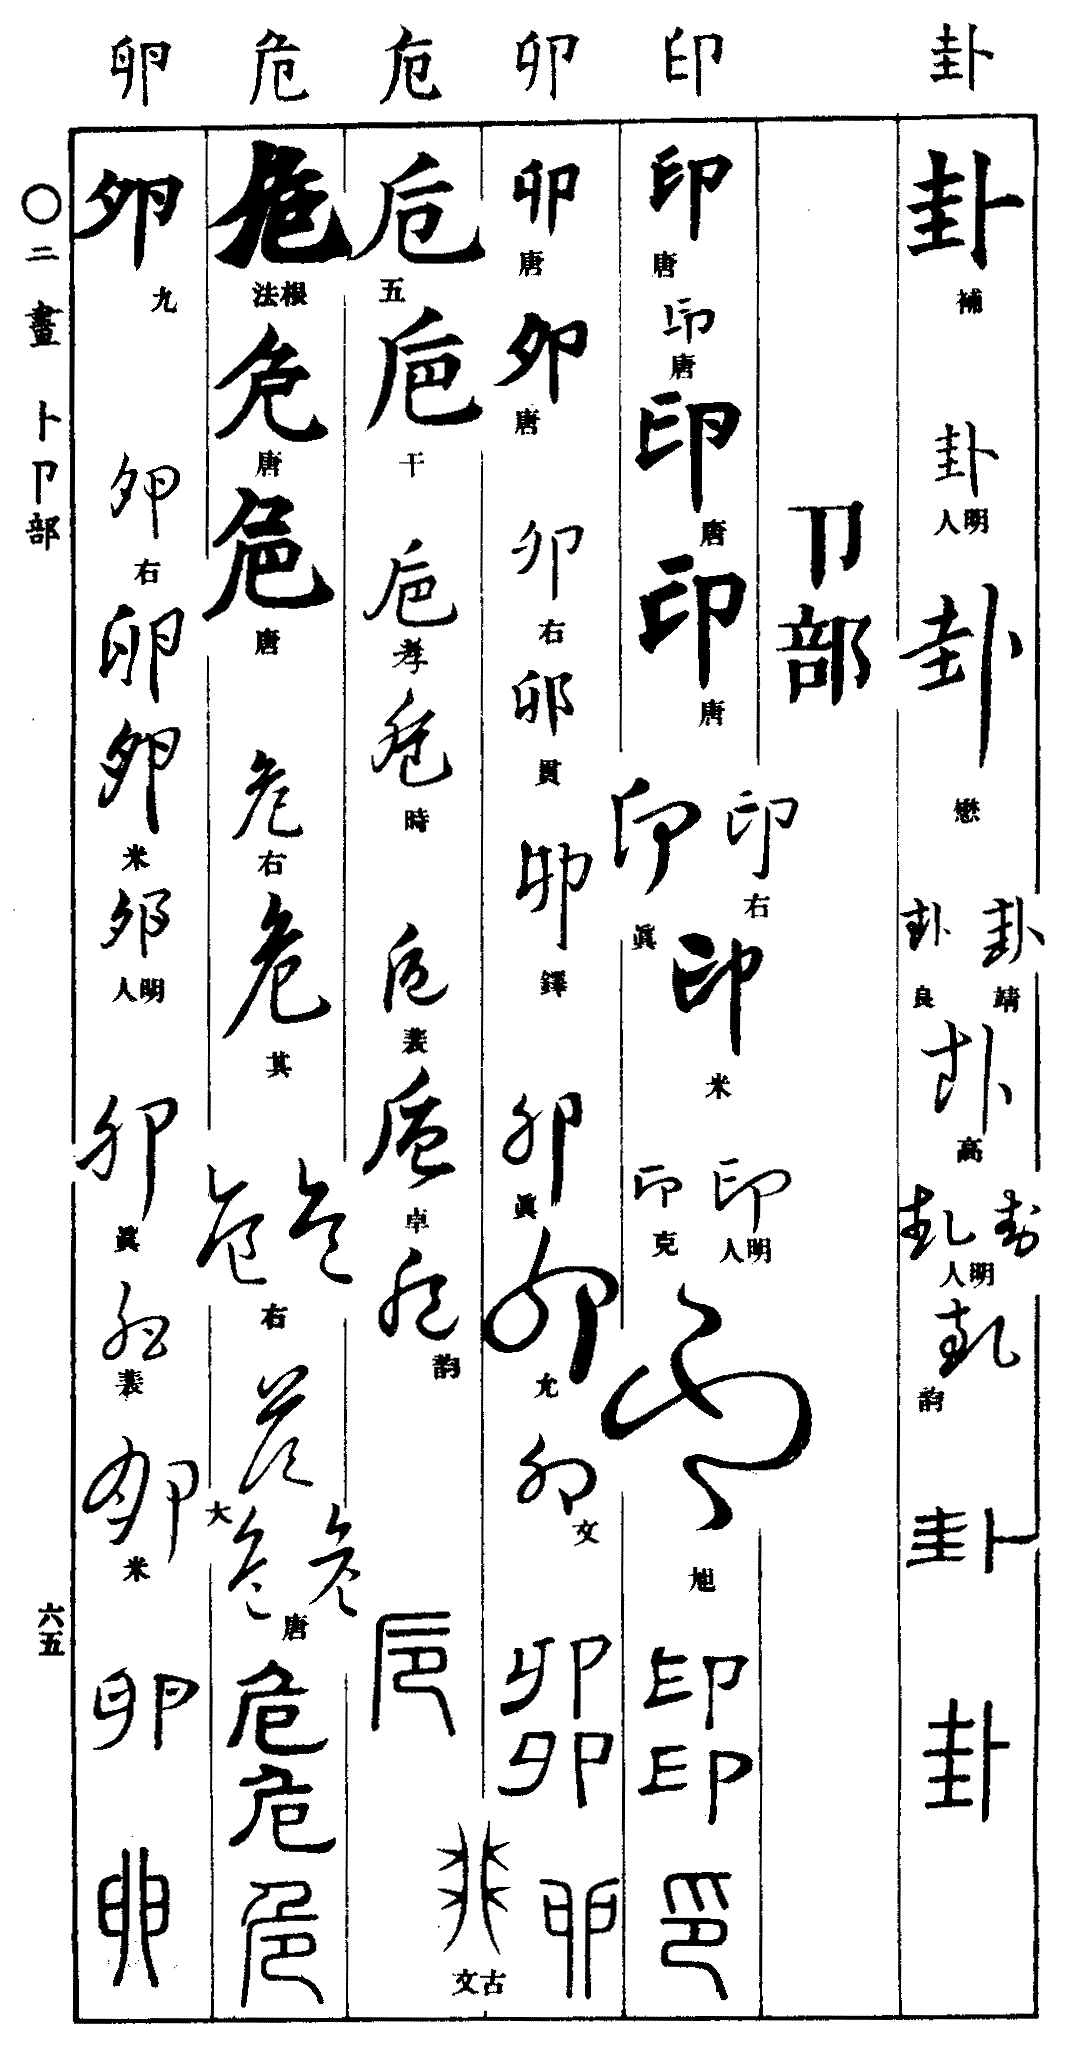 卦 印 卯 卮 危 卵
卦 補 卦 明人 卦 懋 卦 靖 卦 良 卦 高 卦 卦 明人 卦 韵 卦 卦
卩部
印 唐 印 唐 印 唐 印 唐 印 右 印 眞 印 米 印 明人 印 克 印 旭 印 印 印
卯 唐 卯 唐 卯 右 卯 貫 卯 鐸 卯 眞 卯 允 卯 文 卯 卯 卯 古文
卮 五 巵 干 巵 孝 卮 時 卮 裴 卮 卓 卮 韵 卮
危 根法 危 唐 危 唐 危 右 危 其 危 危 右 危 大 危 危 唐 危 危 危
卵 九 卵 右 卵 卵 米 卵 明人 卵 眞 卵 裴 卵 米 卵 卵
〇二畫 卜卩部
六五